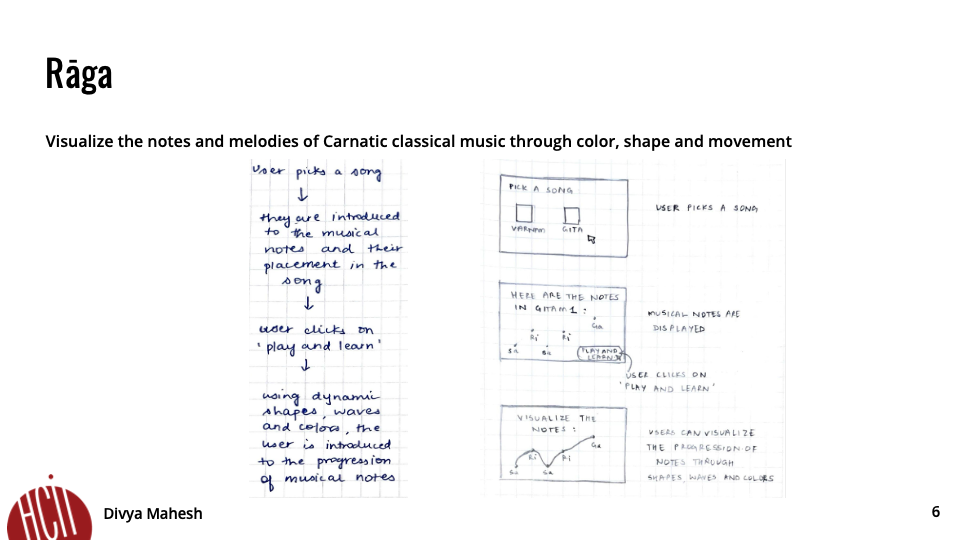 Rāga
Visualize the notes and melodies of Carnatic classical music through color, shape and movement
User picks a song
they are introduced
to the musical
notes and their
placement in the
song
user clicks on
'play and learn'
using dynamic
shapes, waves
and colors, the
user is introduced
to the progression
of musical notes
PICK A SONG
VARNAM GITA
USER PICKS A SONG
HERE ARE THE NOTES
IN GITAM 1 :
Ga
Ri Ri
Sa Sa
PLAY AND
LEARN
MUSICAL NOTES ARE
DISPLAYED
USER CLICKS ON
'PLAY AND LEARN'
VISUALIZE THE
NOTES :
Ga
Ri Ri
Sa Sa
USERS CAN VISUALIZE
THE PROGRESSION OF
NOTES THROUGH
SHAPES, WAVES AND COLORS
HCII
Divya Mahesh
6